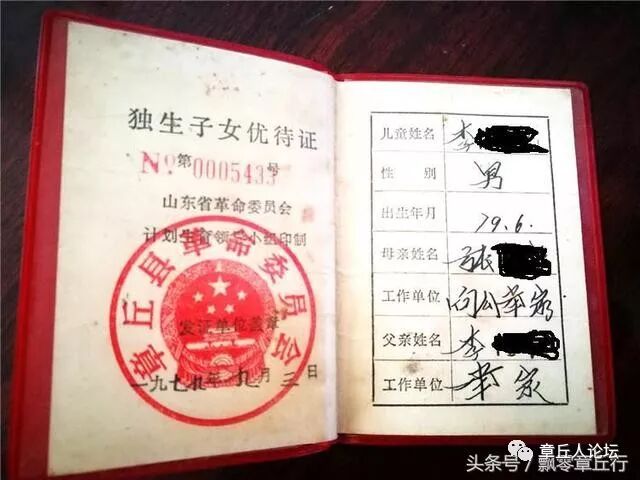 独生子女优待证
No 第0005433号
山东省革命委员会
计划生育领导小组印制
章丘县革命委员会
发证单位盖章
一九七九年九月三日
儿童姓名 李
性别 男
出生年月 79.6.
母亲姓名 张
工作单位
父亲姓名 李
工作单位
章丘人论坛
头条号/飘零章丘行